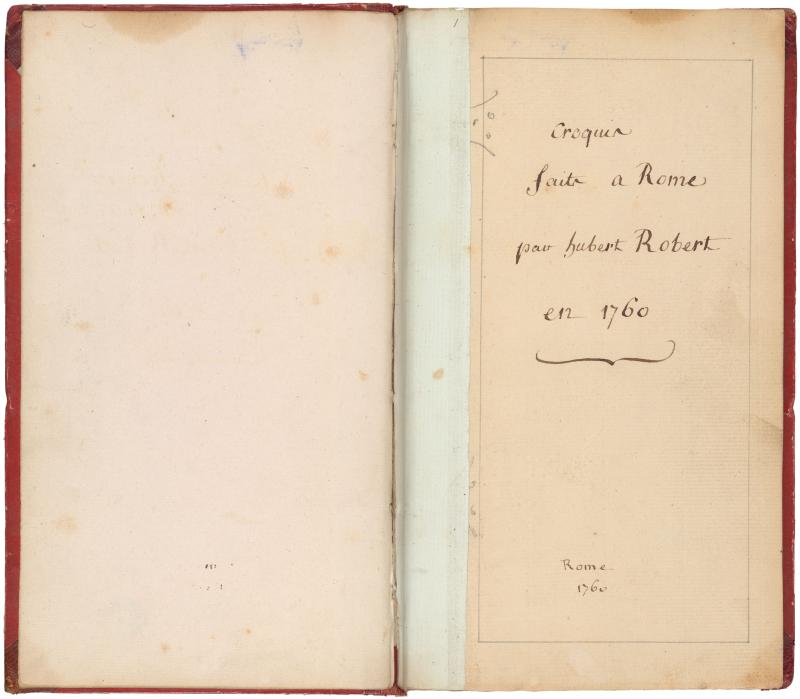 1
Croquis
faits a Rome
par hubert Robert
en 1760
Rome
1760